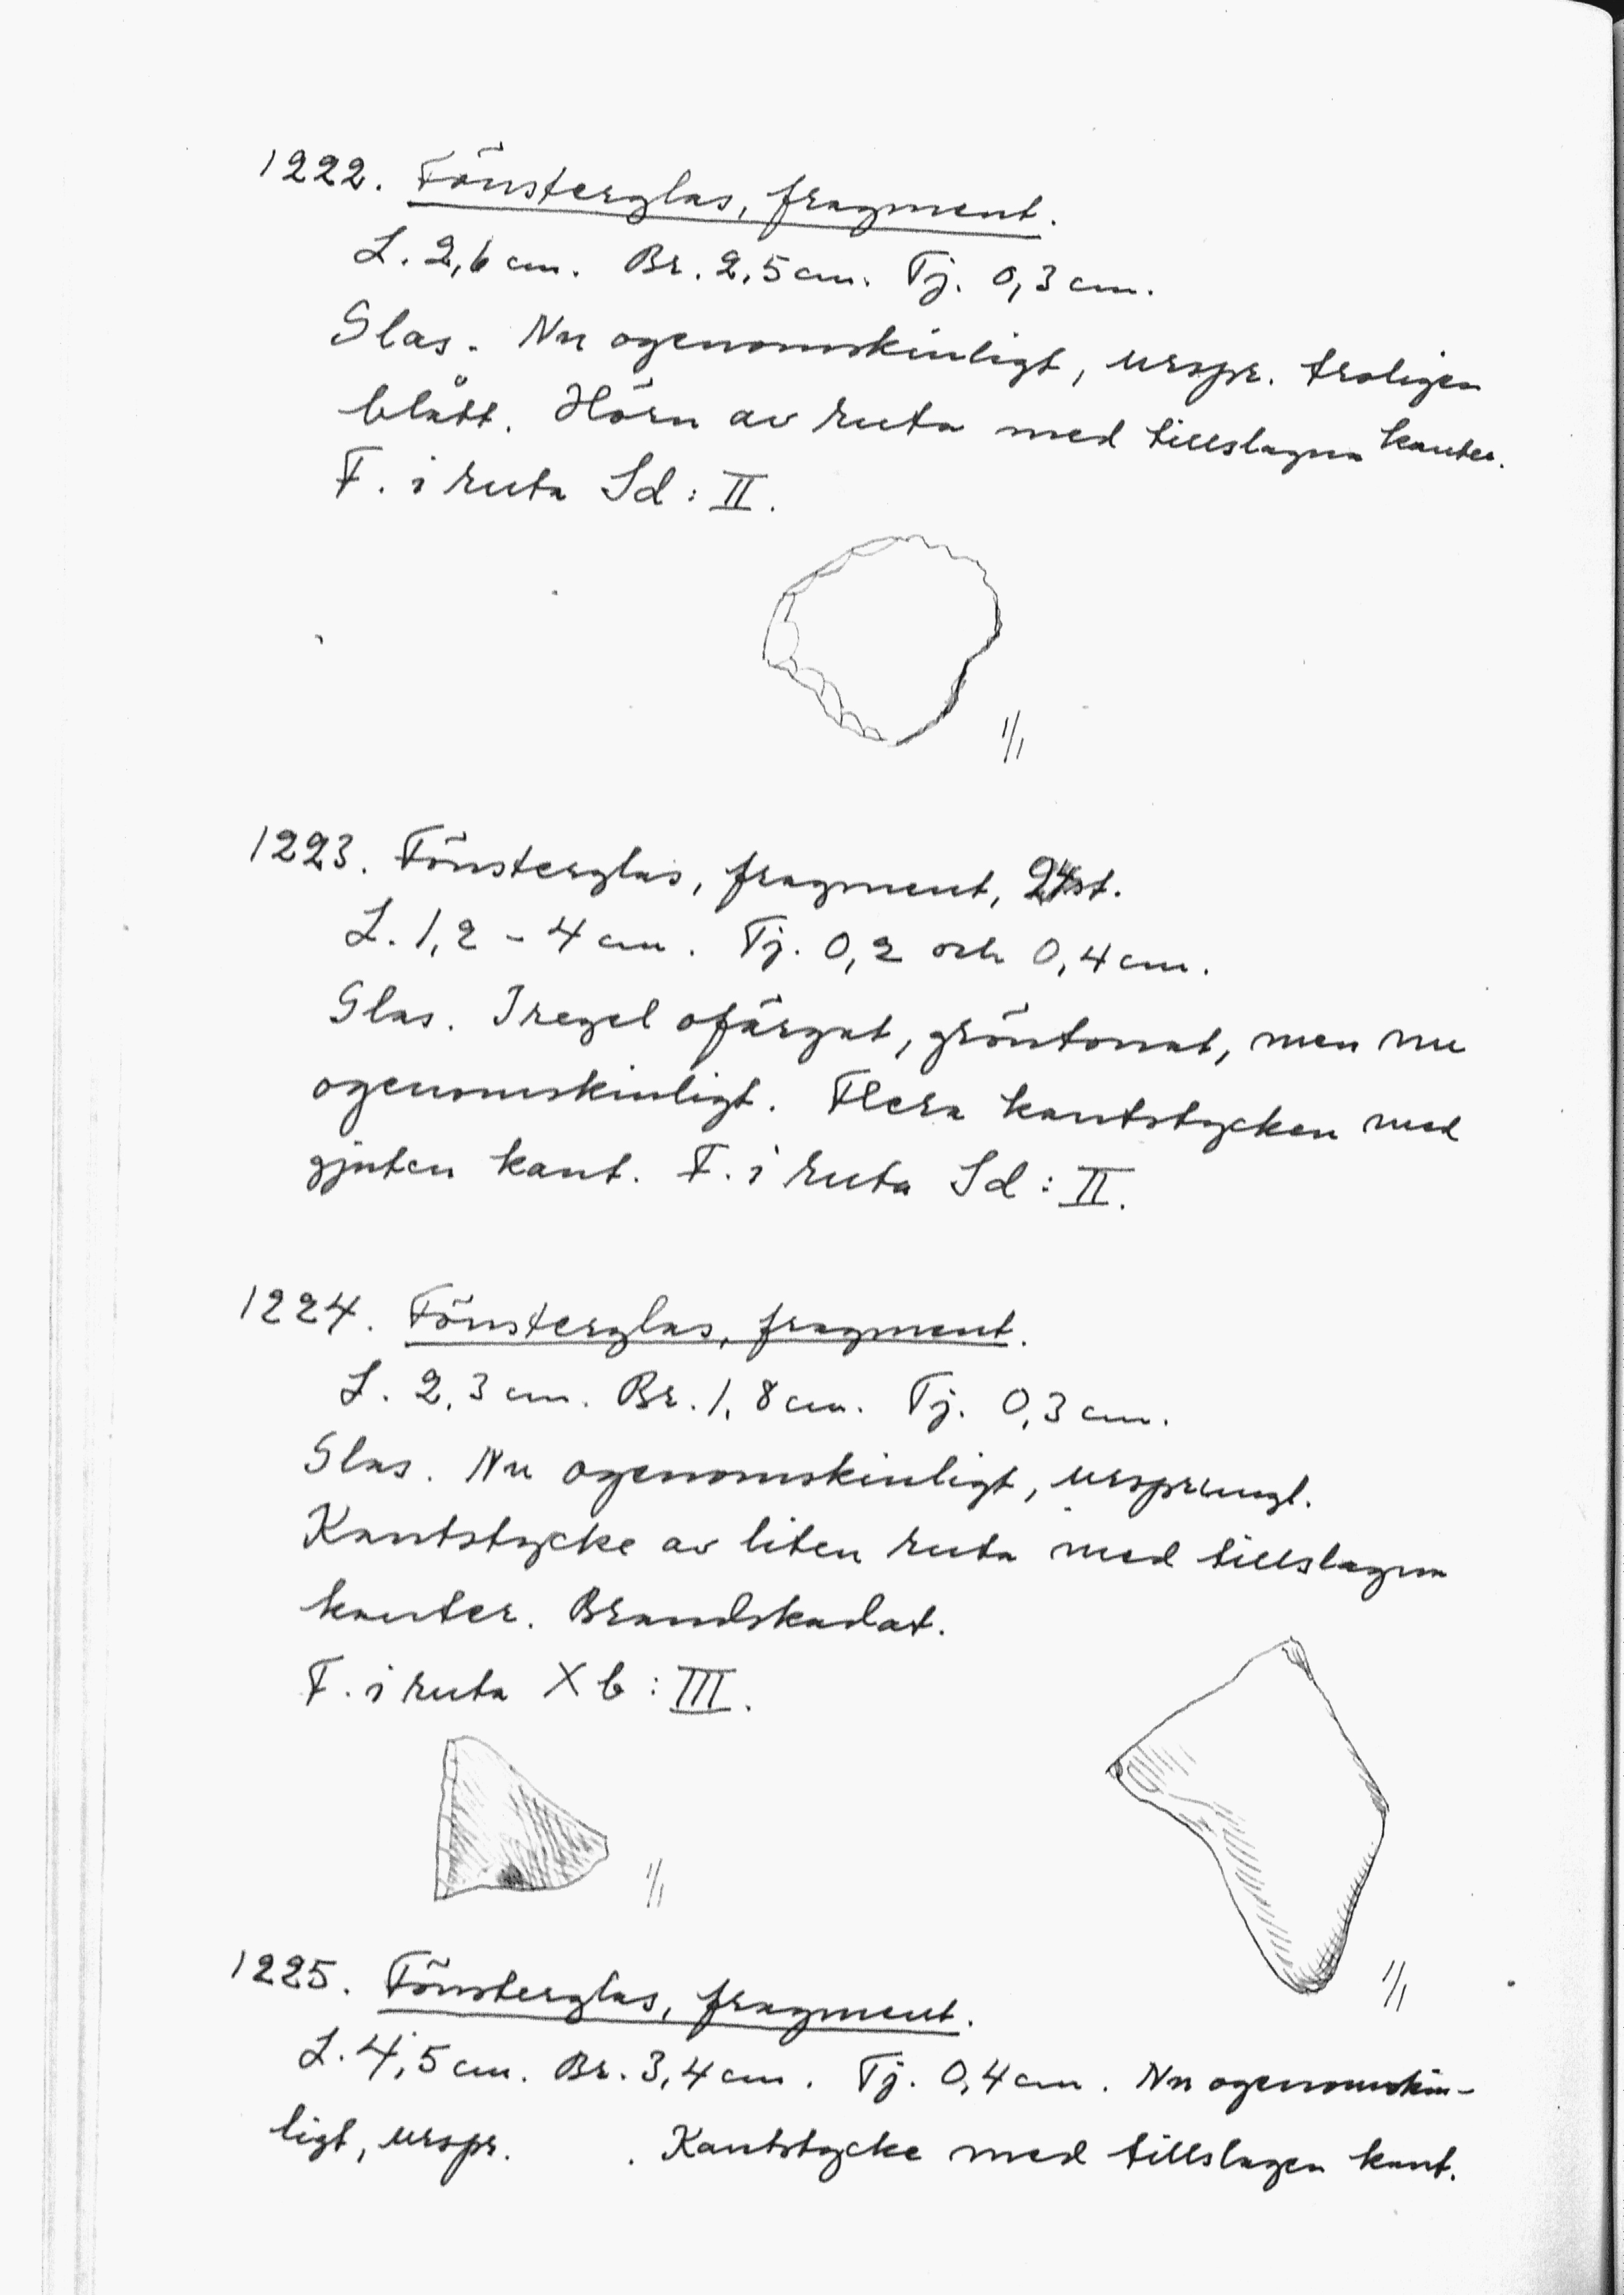 1222. Fönsterglas, fragment.
L. 2,6 cm. Br. 2,5 cm. Tj. 0,3 cm.
Glas. Nu ogenomskinligt, urspr. troligen
blått. Hörn av ruta med tillslagna kanter.
F. i ruta Sd: II.
1/1
1223. Fönsterglas, fragment, 24st.
L. 1,2 - 4 cm. Tj. 0,2 och 0,4 cm.
Glas. I regel ofärgat, gröntonat, men nu
ogenomskinligt. Flera kantstycken med
gjuten kant. F. i ruta Sd: II.
1224. Fönsterglas, fragment.
L. 2,3 cm. Br. 1,8 cm. Tj. 0,3 cm.
Glas. Nu ogenomskinligt, ursprungl.
Kantstycke av liten ruta med tillslagna
kanter. Brandskadat.
F. i ruta Xb: III.
1/1
1/1
1225. Fönsterglas, fragment.
L. 4,5 cm. Br. 3,4 cm. Tj. 0,4 cm. Nu ogenomskin-
ligt, urspr. . Kantstycke med tillslagen kant.